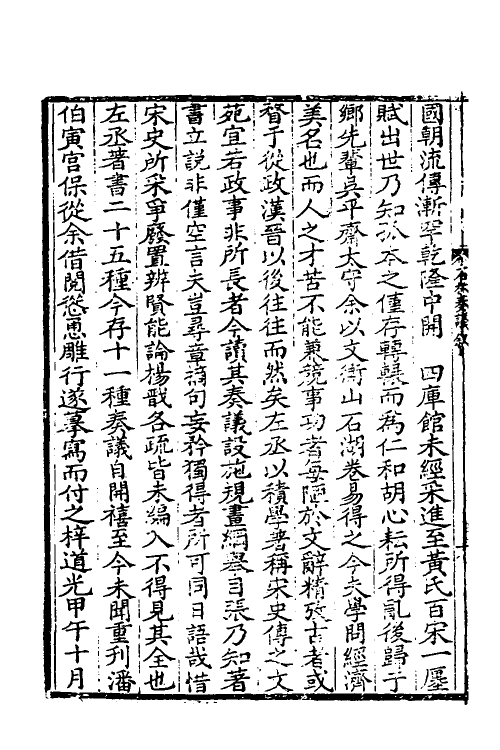 國朝流傳漸罕乾隆中開　四庫館未經采進至黃氏百宋一廛
賦出世乃知孤本之僅存轉輾而爲仁和胡心耘所得亂後歸于
鄉先輩吳平齋太守余以文衡山石湖卷易得之今夫學問經濟
美名也而人之才苦不能兼競事功者每陋於文辭精攷古者或
瞀于從政漢晉以後往往而然矣左丞以積學著稱宋史傳之文
苑宜若政事非所長者今讀其奏議設施規畫綱舉目張乃知著
書立說非僅空言夫豈尋章摘句妄矜獨得者所可同日語哉惜
宋史所采爭廢置辨賢能論楊戩各疏皆未編入不得見其全也
左丞著書二十五種今存十一種奏議自開禧至今未聞重刊潘
伯寅宮保從余借閱慫恿雕行遂摹寫而付之梓道光甲午十月